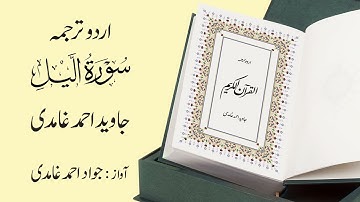 اردو ترجمہ
سورۃ الیل
جاوید احمد غامدی
آواز : جواد احمد غامدی
اردو ترجمہ
القرآن الکریم
جاوید احمد غامدی